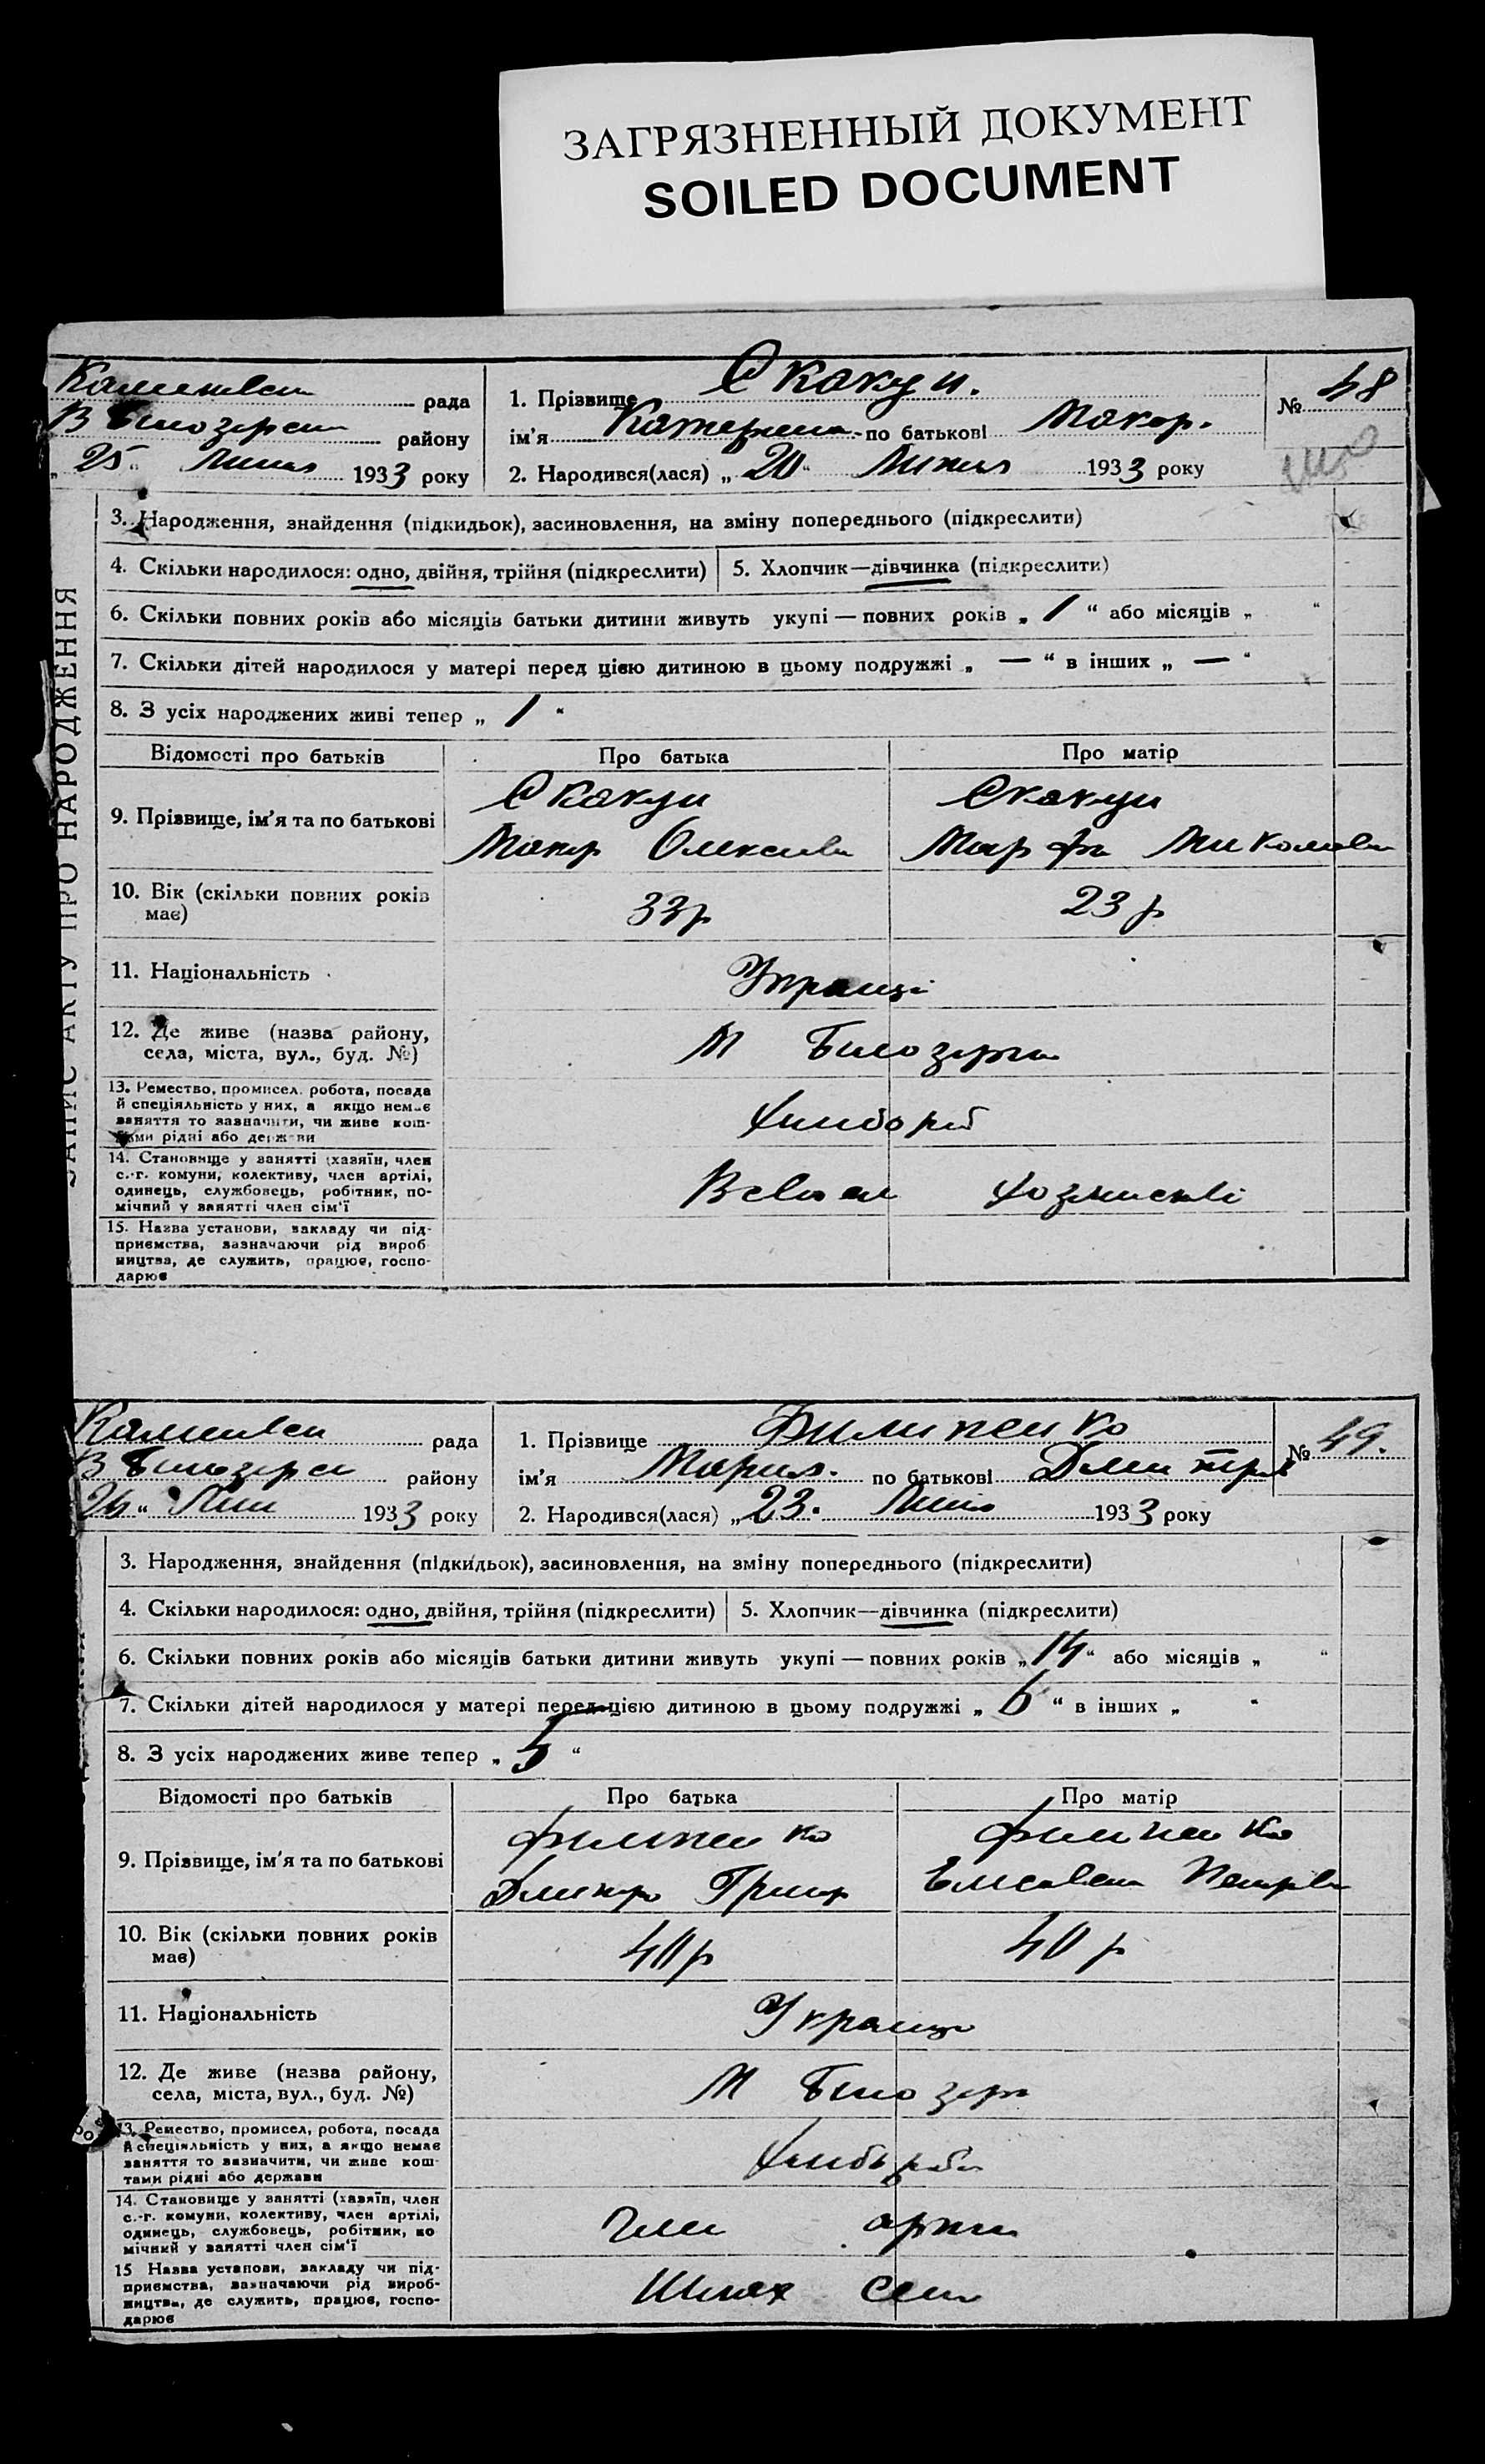 ЗАГРЯЗНЕННЫЙ ДОКУМЕНТ
SOILED DOCUMENT
рада
В Білозерськ району
„25“ Липня 1933 року
1. Прізвище Скакун.
ім'я Катерина по батькові Макар.
2. Народився(лася) „20“ Липня 1933 року
№ 48
ЗАПИС АКТУ ПРО НАРОДЖЕННЯ
3. Народження, знайдення (підкидьок), засиновлення, на зміну попереднього (підкреслити)
4. Скільки народилося: одно, двійня, трійня (підкреслити)
5. Хлопчик—дівчинка (підкреслити)
6. Скільки повних років або місяців батьки дитини живуть укупі — повних років „1“ або місяців „ “
7. Скільки дітей народилося у матері перед цією дитиною в цьому подружжі „—“ в інших „—“
8. З усіх народжених живі тепер „1“
Відомості про батьків
Про батька
Про матір
9. Прізвище, ім'я та по батькові
Скакун
Макар Олексієв
Скакун
Марфа Миколаєв
10. Вік (скільки повних років
має)
33р
23р
11. Національність
Українці
12. Де живе (назва району,
села, міста, вул., буд. №)
М Білозерка
13. Ремество, промисел, робота, посада
й спеціяльність у них, а якщо немає
заняття то зазначити, чи живе кош-
тами рідні або держави
Хлібороб
14. Становище у занятті (хазяїн, член
с.-г. комуни, колективу, член артілі,
одинець, службовець, робітник, по-
мічний у занятті член сім'ї
15. Назва установи, закладу чи під-
приємства, зазначаючи рід вироб-
ництва, де служить, працює, госпо-
дарює
рада
В Білозерськ району
1933 року
1. Прізвище Филипенко
ім'я Мария. по батькові Дмитрів
2. Народився(лася) „23. Липня 1933 року
№ 49.
3. Народження, знайдення (підкидьок), засиновлення, на зміну попереднього (підкреслити)
4. Скільки народилося: одно, двійня, трійня (підкреслити)
5. Хлопчик—дівчинка (підкреслити)
6. Скільки повних років або місяців батьки дитини живуть укупі — повних років „14“ або місяців „ “
7. Скільки дітей народилося у матері перед цією дитиною в цьому подружжі „6“ в інших „ “
8. З усіх народжених живе тепер „5“
Відомості про батьків
Про батька
Про матір
9. Прізвище, ім'я та по батькові
Филипенко
Дмитро Григор
Филипенко
Елисавета Петрів
10. Вік (скільки повних років
має)
40р
40р
11. Національність
Українці
12. Де живе (назва району,
села, міста, вул., буд. №)
М Білозерк
13. Ремество, промисел, робота, посада
й спеціяльність у них, а якщо немає
заняття то зазначити, чи живе кош-
тами рідні або держави
14. Становище у занятті (хазяїн, член
с.-г. комуни, колективу, член артілі,
одинець, службовець, робітник, по
мічний у занятті член сім'ї
Член артіл
15 Назва установи, закладу чи під-
приємства, зазначаючи рід вироб-
ництва, де служить, працює, госпо-
дарює
Шлях Сел